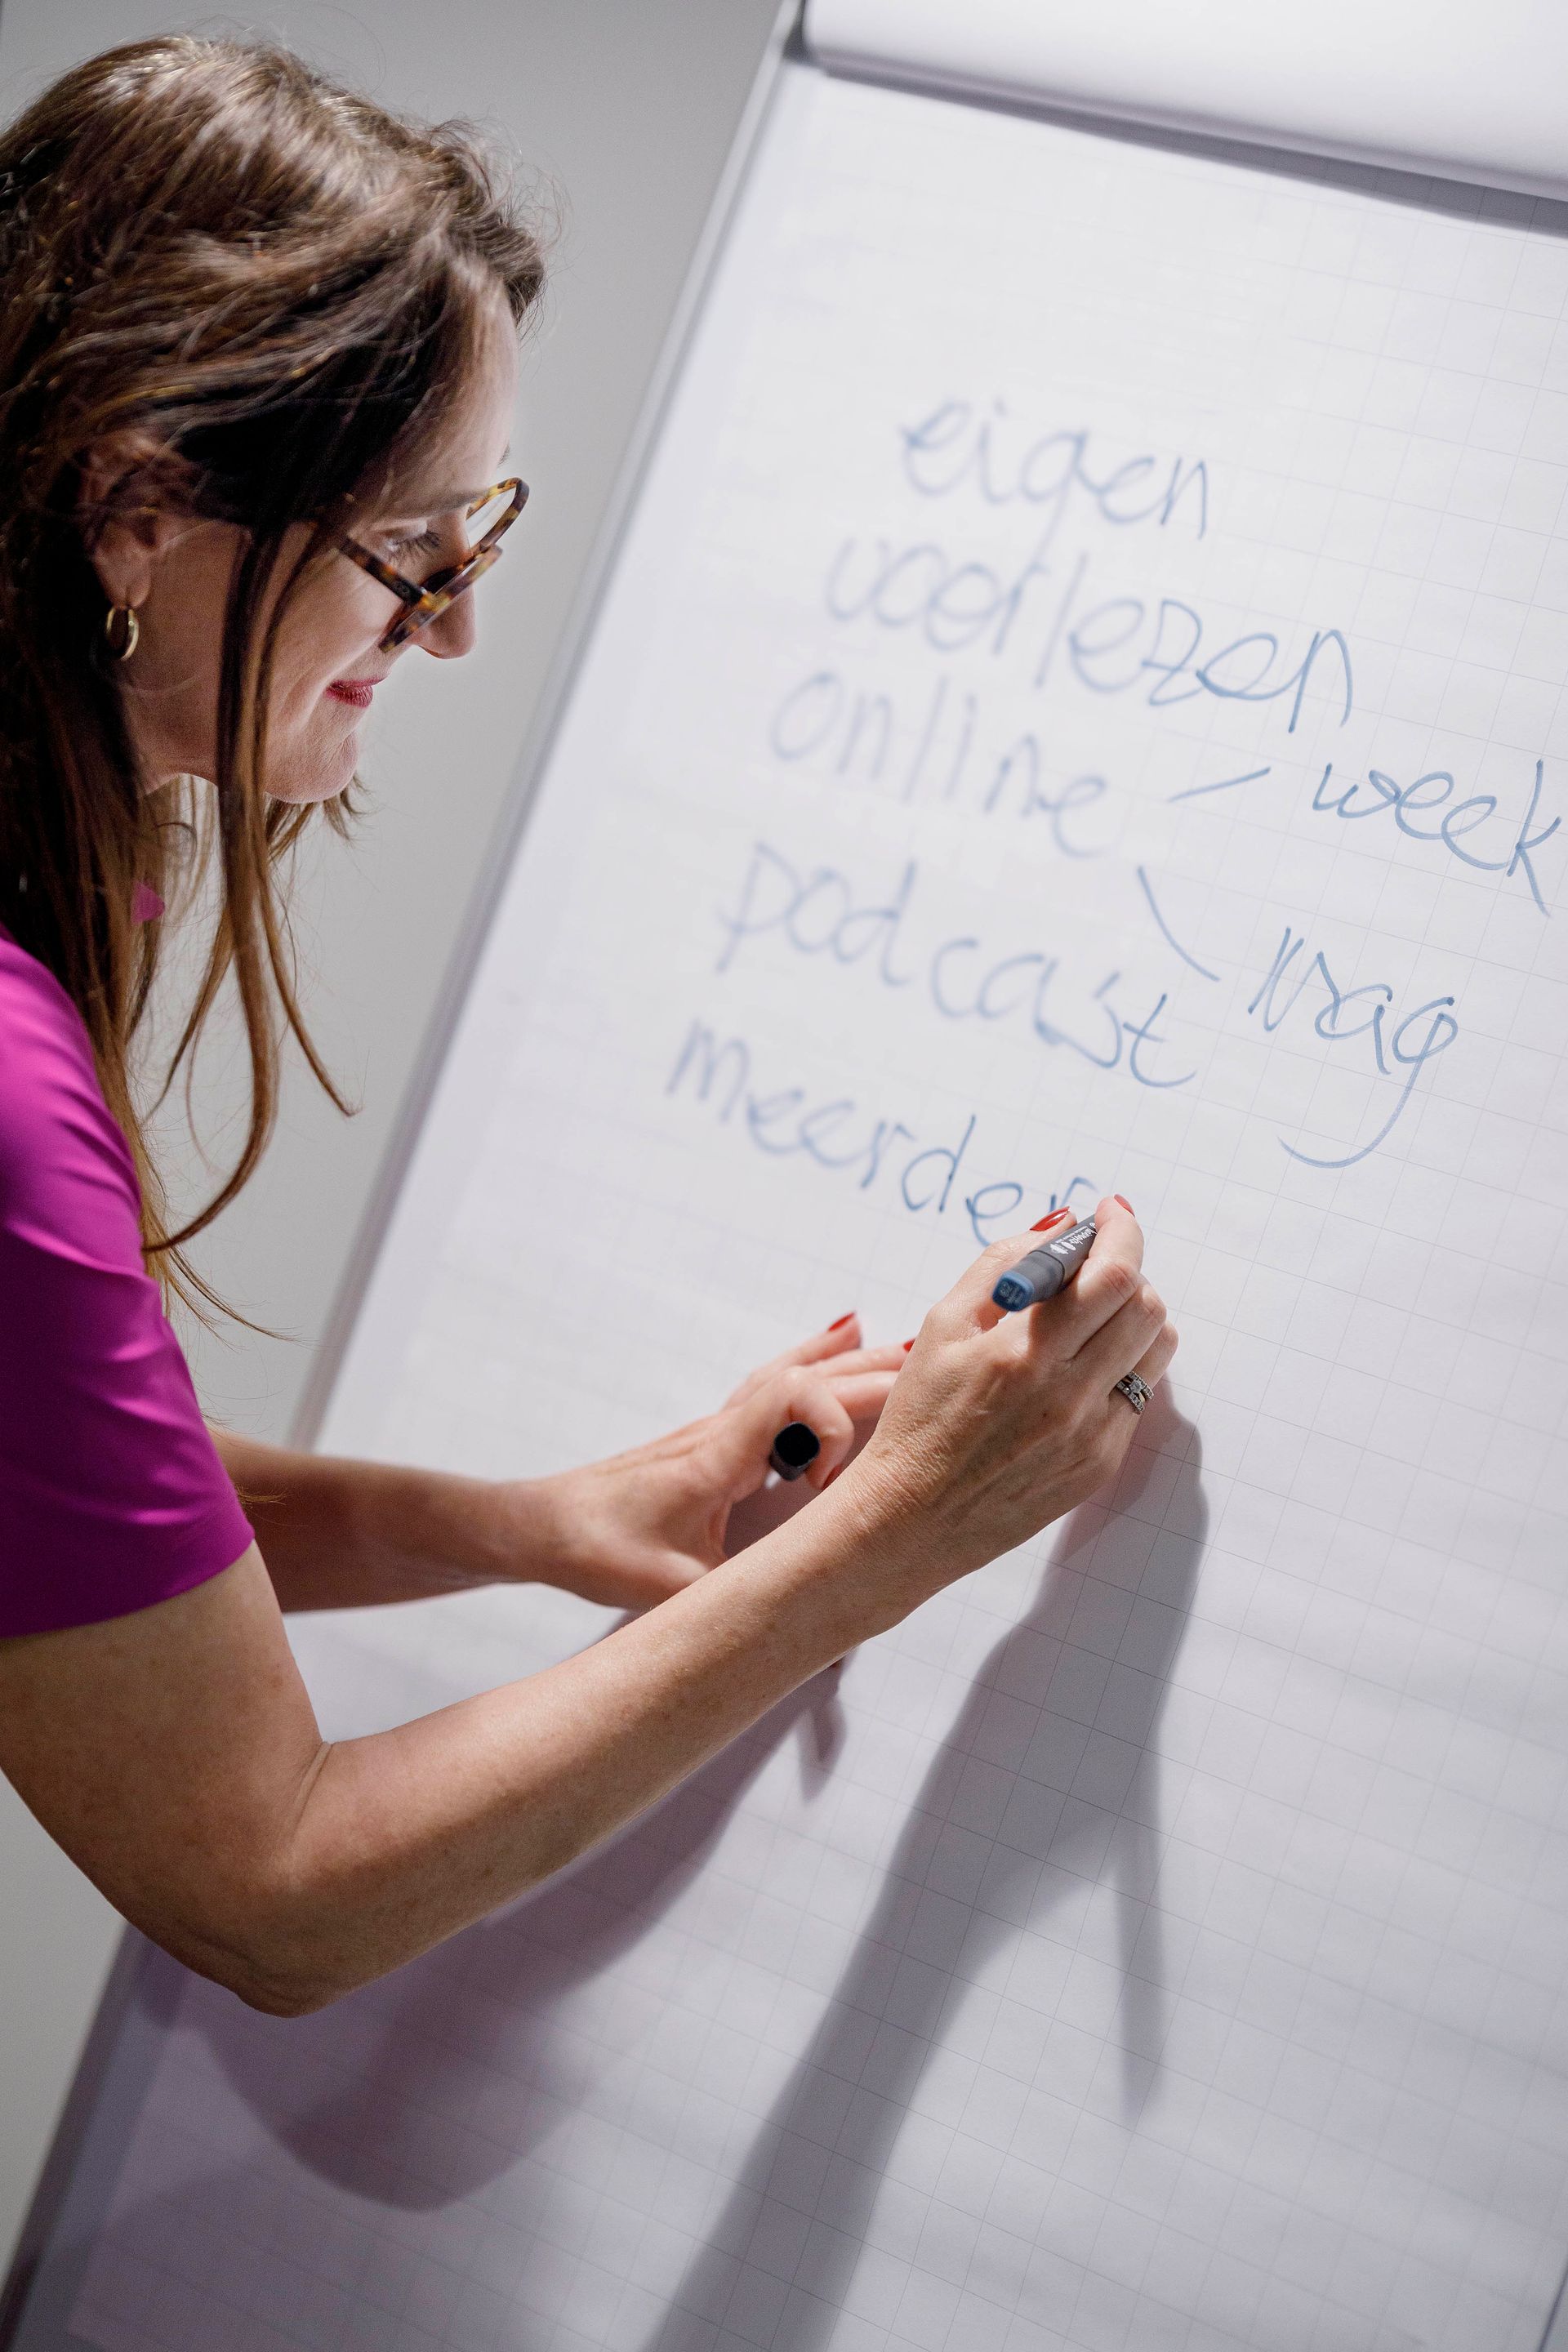 eigen
voorlezen
online - week
podcast
meerder